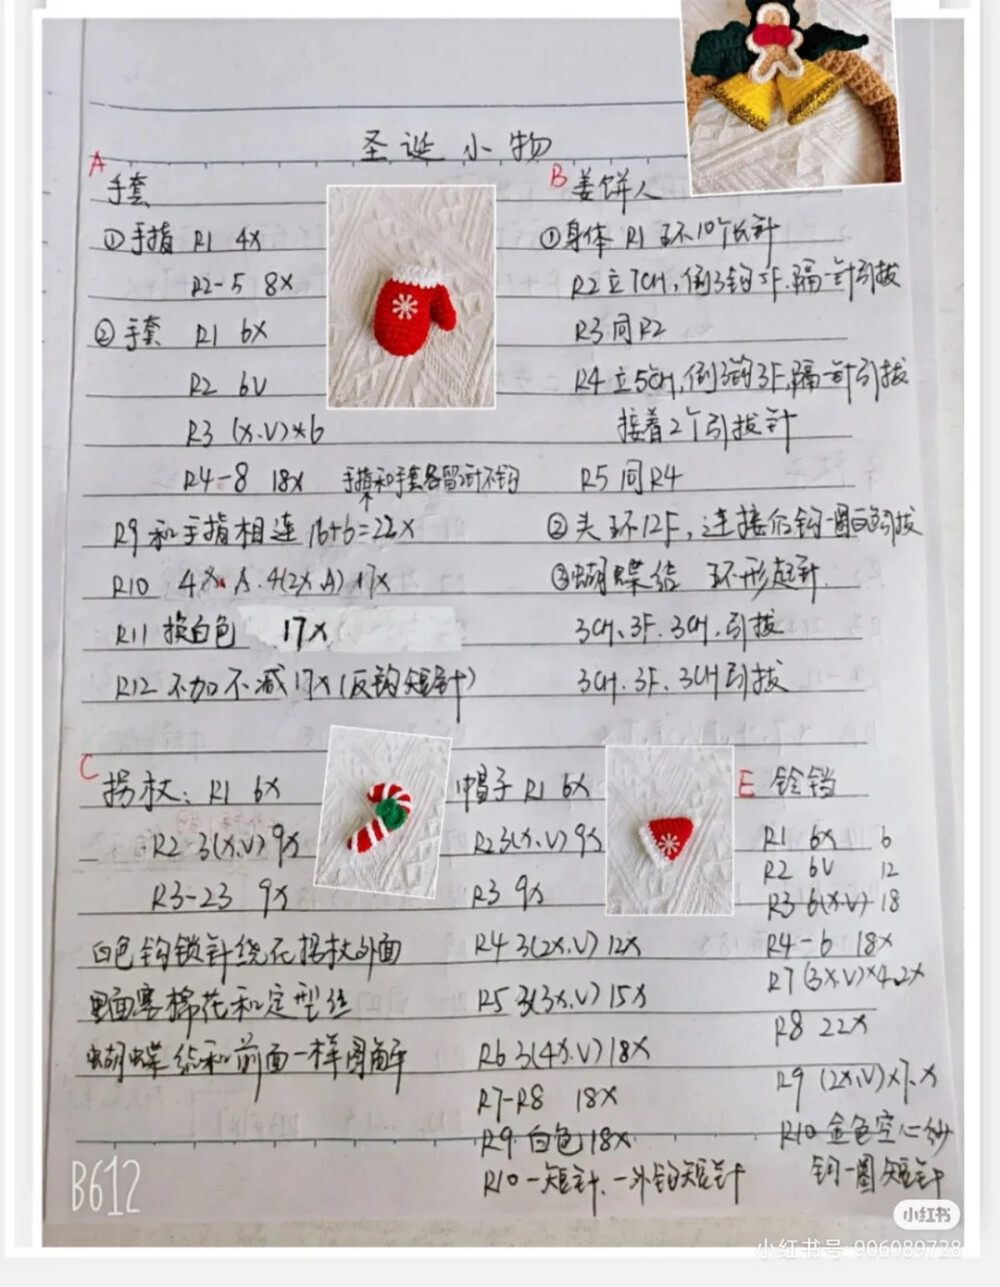 圣诞小物
A
手套
①手指 R1 4X
R2-5 8X
②手套 R1 6X
R2 6V
R3 (X.V)*6
R4-8 18X 手指和手套各留2针不钩
R9 和手指相连 16+6=22X
R10 4X.A.4(2X.A) 17X
R11 换白色 17X
R12 不加不减17X(反钩短针)
B 姜饼人
①身体 R1 环10个长针
R2 立7CH,倒3钩5F.隔一针引拔
R3 同R2
R4 立5CH,倒3钩3F,隔一针引拔
接着2个引拔针
R5 同R4
②头 环12F,连接后钩一圈白色引拔
③蝴蝶结 环形起针
3CH、3F、3CH、引拔
3CH.3F、3CH引拔
C
拐杖: R1 6X
R2 3(X,V) 9X
R3-23 9X
白色钩锁针绕在拐杖外面
里面塞棉花和定型丝
蝴蝶结和前面一样图解
帽子 R1 6X
R2 3(X,V) 9X
R3 9X
R4 3(2X,V) 12X
R5 3(3X,V) 15X
R6 3(4X.V) 18X
R7-R8 18X
R9 白色18X
R10 一短针、一外钩短针
E 铃铛
R1 6X 6
R2 6V 12
R3 6(X.V) 18
R4-6 18X
R7 (3X,V)*4.2X
R8 22X
R9 (2X,V)×7.X
R10 金色空心纱
钩一圈短针
B612
小红书
小红书号 906089728